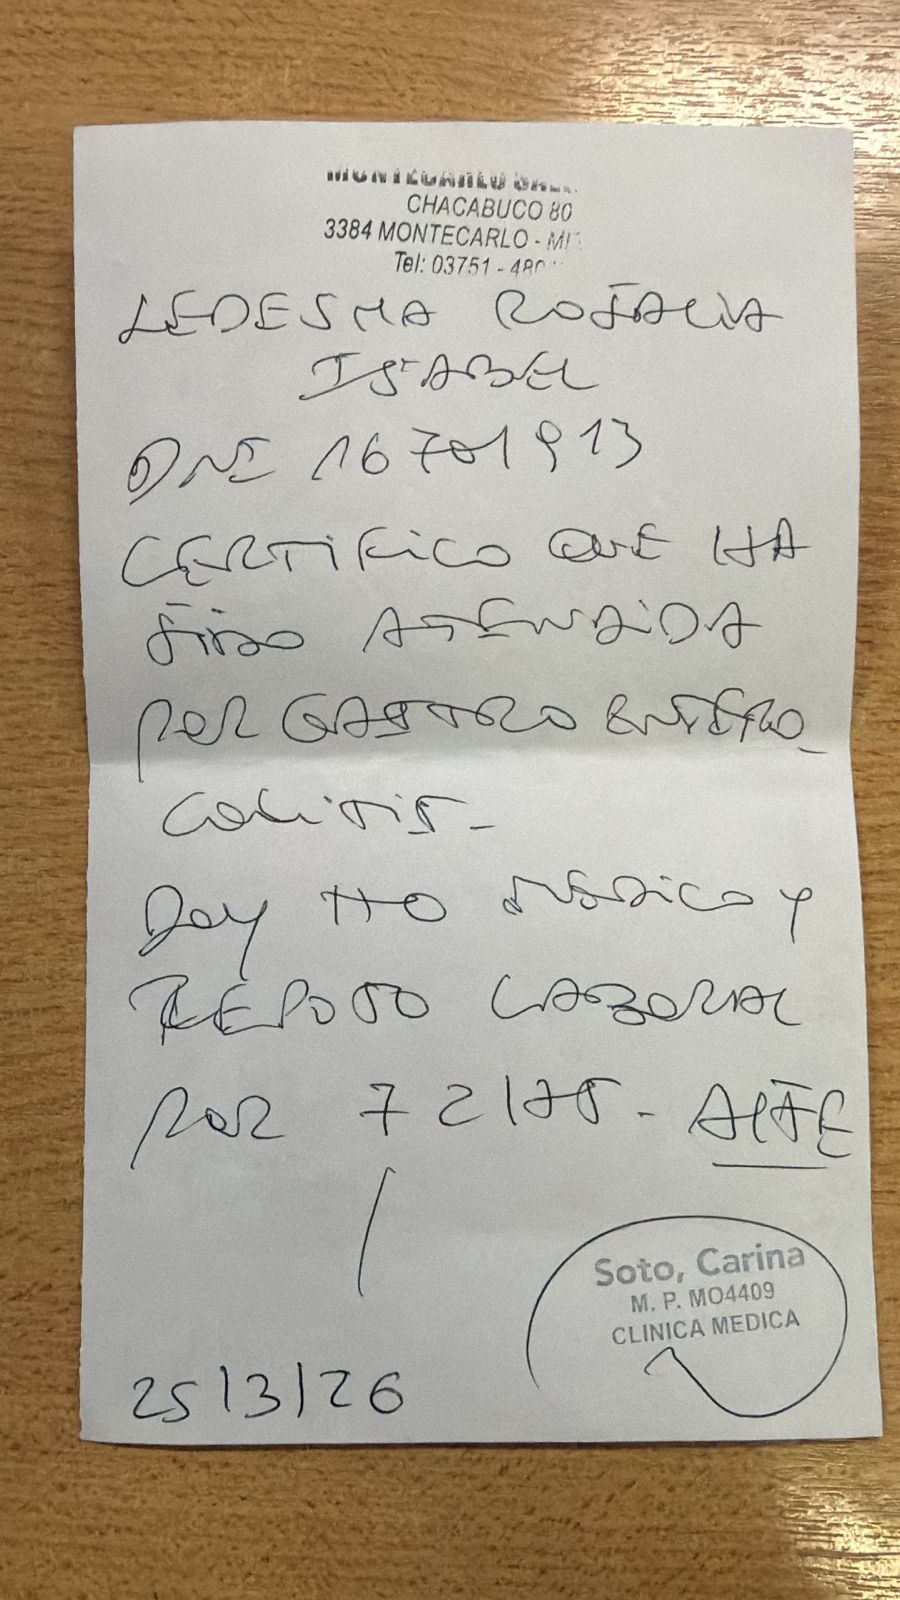 MONTECARLO
CHACABUCO 80
3384 MONTECARLO - MI
Tel: 03751 - 480
LEDESMA ROSALIA
ISABEL
DNI 16701913
CERTIFICO QUE HA
SIDO ATENDIDA
POR GASTRO ENTERO
COLITIS -
DOY TTO MEDICO Y
REPOSO LABORAL
POR 72 HS -
Soto, Carina
M. P. MO4409
CLINICA MEDICA
25/3/26